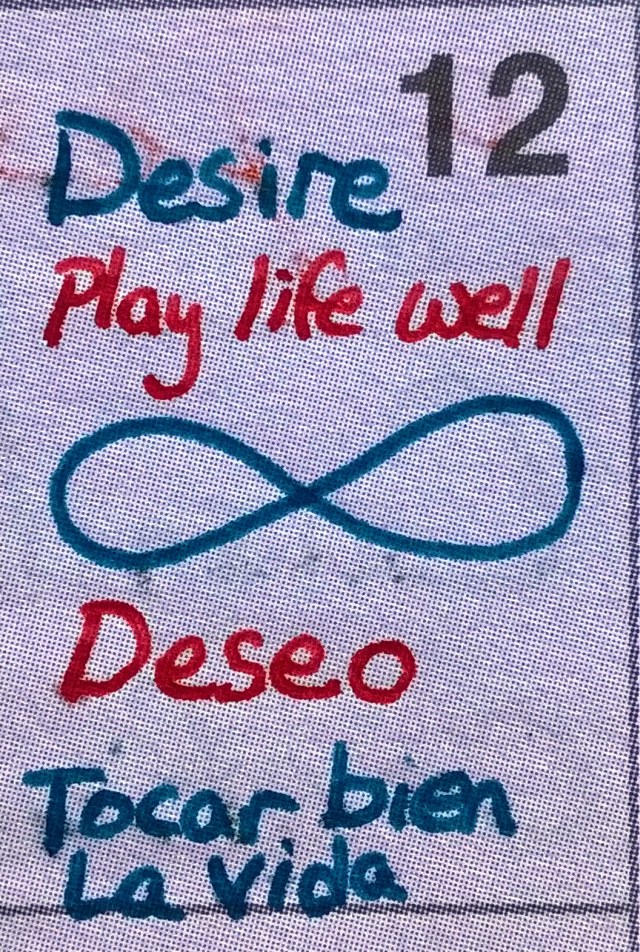 12
Desire
Play life well
Deseo
Tocar bien
La vida